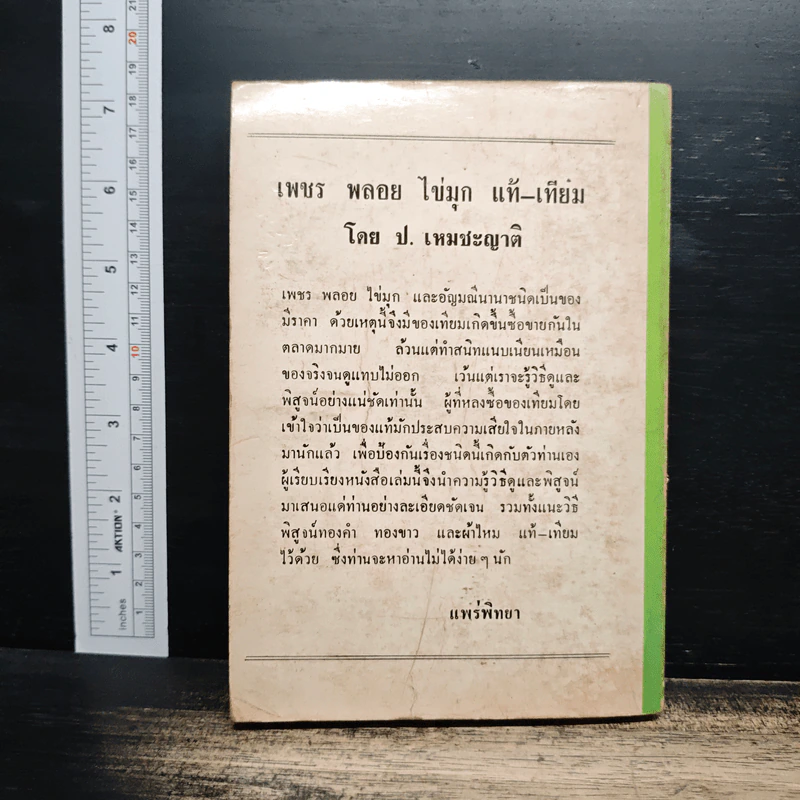 เพชร พลอย ไข่มุก แท้-เทียม
โดย ป. เหมชะญาติ
เพชร พลอย ไข่มุก และอัญมณีนานาชนิดเป็นของ
มีราคา ด้วยเหตุนี้จึงมีของเทียมเกิดขึ้นซื้อขายกันใน
ตลาดมากมาย ล้วนแต่ทำสนิทแนบเนียนเหมือน
ของจริงจนดูแทบไม่ออก เว้นแต่เราจะรู้วิธีดูและ
พิสูจน์อย่างแน่ชัดเท่านั้น ผู้ที่หลงซื้อของเทียมโดย
เข้าใจว่าเป็นของแท้มักประสบความเสียใจในภายหลัง
มานักแล้ว เพื่อป้องกันเรื่องชนิดนี้เกิดกับตัวท่านเอง
ผู้เรียบเรียงหนังสือเล่มนี้จึงนำความรู้วิธีดูและพิสูจน์
มาเสนอแด่ท่านอย่างละเอียดชัดเจน รวมทั้งแนะวิธี
พิสูจน์ทองคำ ทองขาว และผ้าไหม แท้-เทียม
ไว้ด้วย ซึ่งท่านจะหาอ่านไม่ได้ง่าย ๆ นัก
แพร่พิทยา
8
7
6
5
4
3
2
1
inches
AKTION
21
20
19
18
17
16
15
14
13
12
11
10
9
8
7
6
5
4
3
2
1